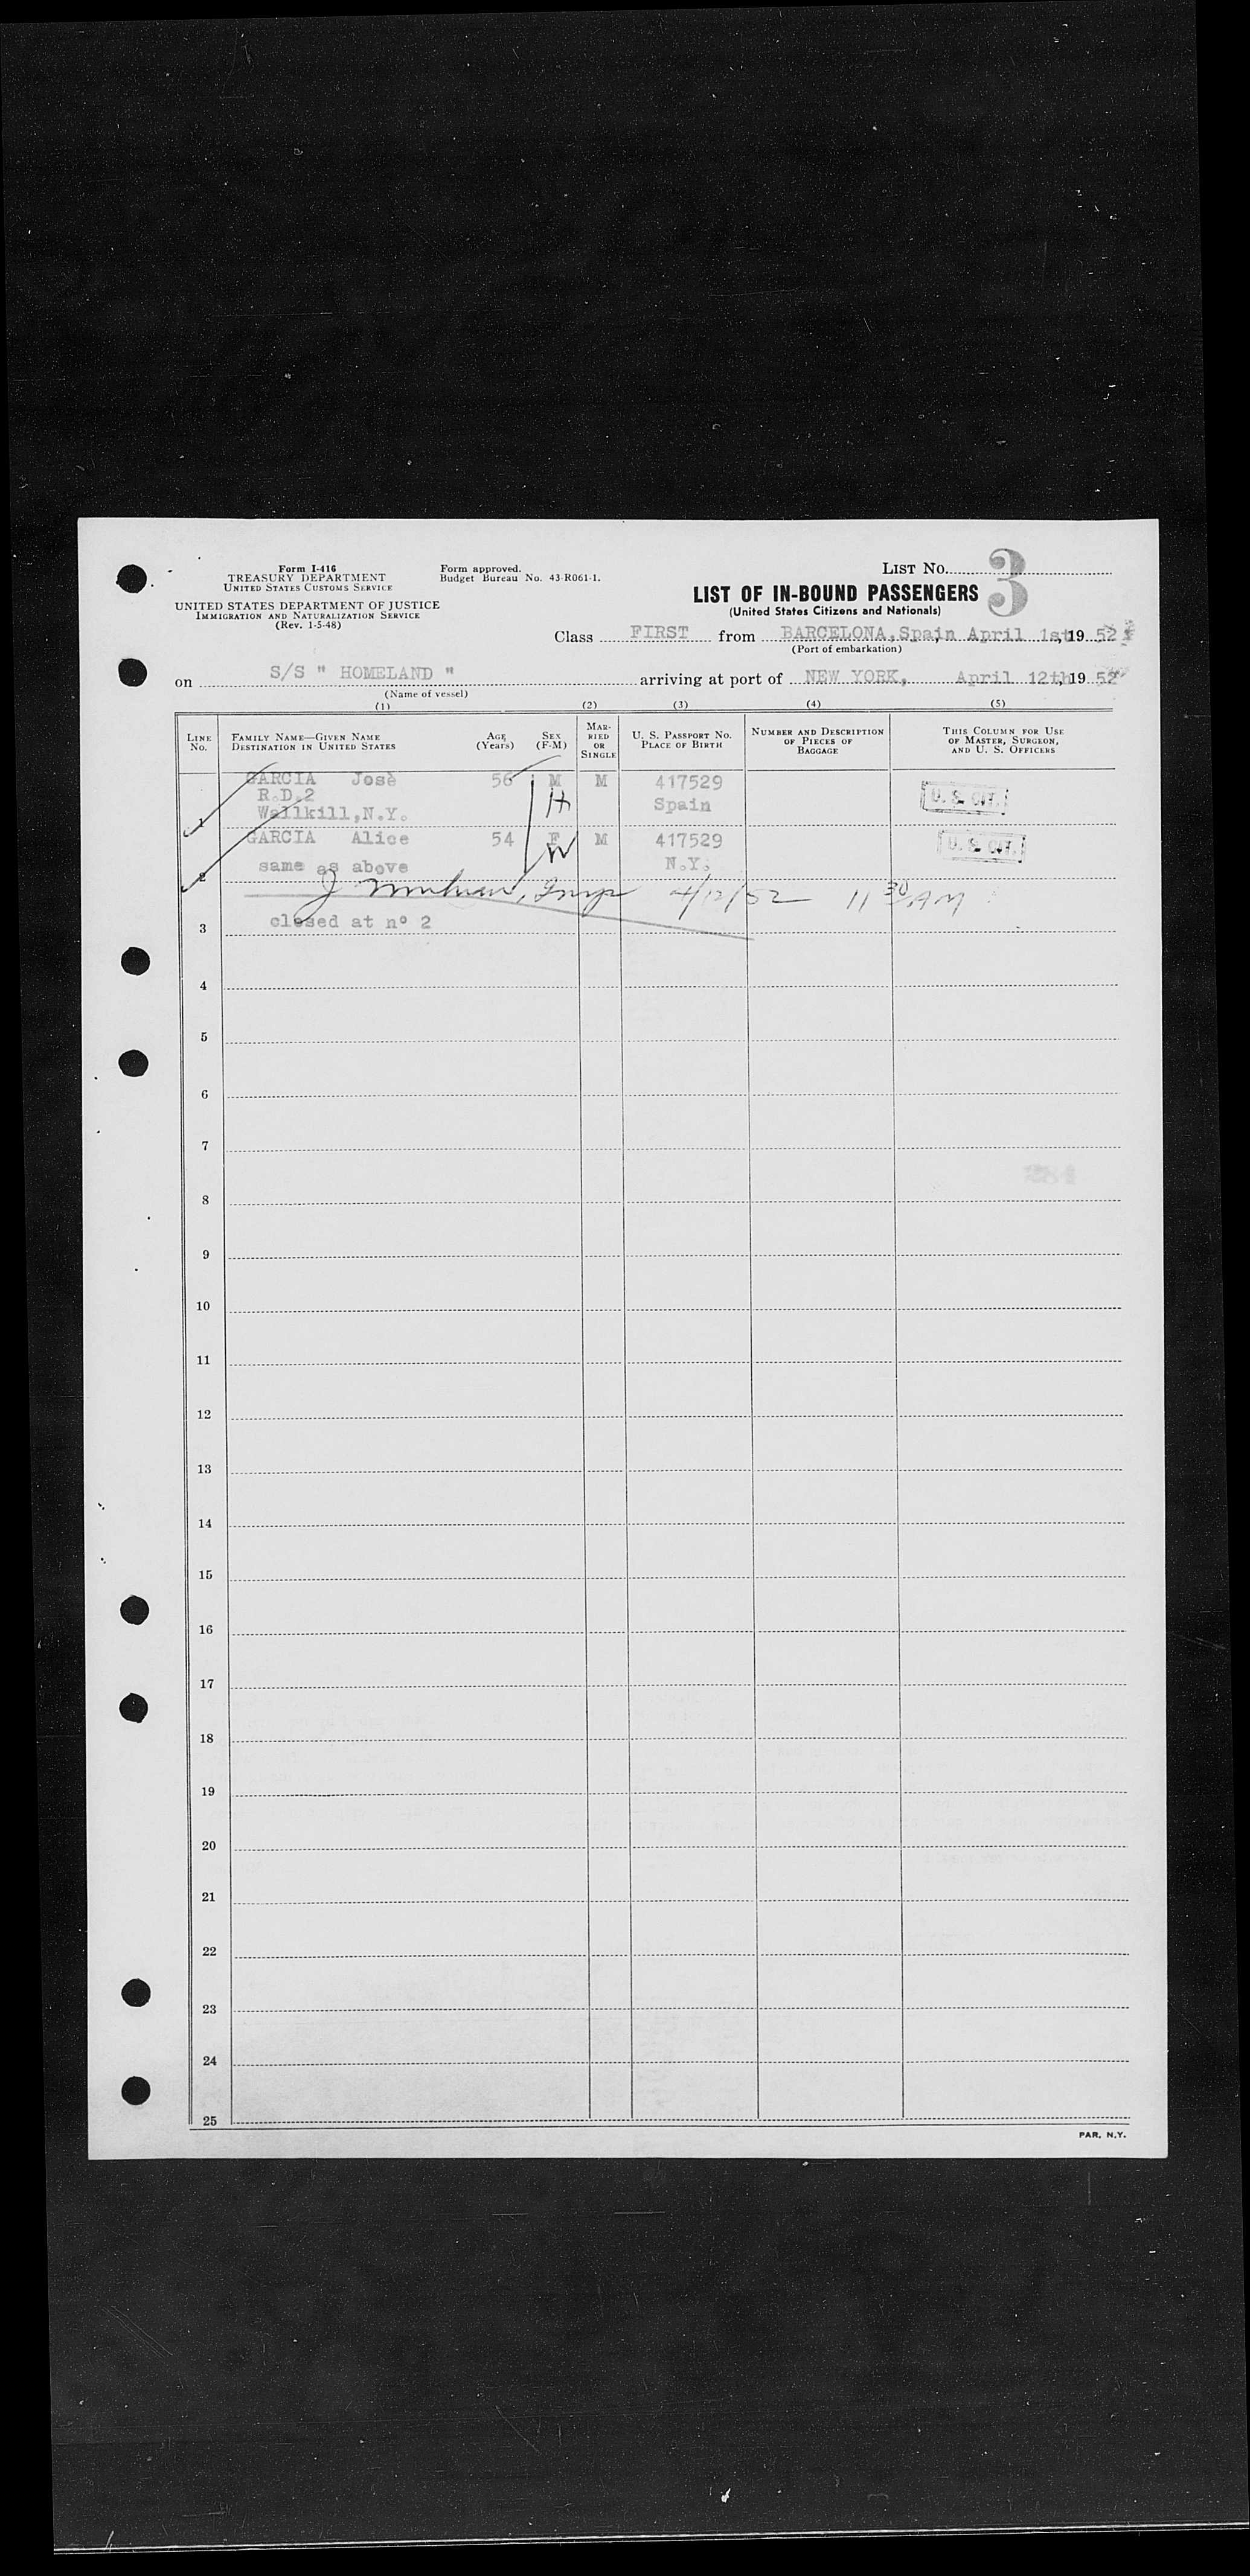 Form I-416
TREASURY DEPARTMENT
UNITED STATES CUSTOMS SERVICE
UNITED STATES DEPARTMENT OF JUSTICE
IMMIGRATION AND NATURALIZATION SERVICE
(Rev. 1-5-48)
Form approved.
Budget Bureau No. 43-R061-1.
LIST NO. 3
LIST OF IN-BOUND PASSENGERS
(United States Citizens and Nationals)
Class FIRST from BARCELONA, Spain April 1st, 19 52
(Port of embarkation)
on S/S " HOMELAND " arriving at port of NEW YORK, April 12th, 19 52
(Name of vessel)
(1) (2) (3) (4) (5)
LINE NO. FAMILY NAME—GIVEN NAME DESTINATION IN UNITED STATES AGE (Years) SEX (F-M) MARRIED OR SINGLE U. S. PASSPORT NO. PLACE OF BIRTH NUMBER AND DESCRIPTION OF PIECES OF BAGGAGE THIS COLUMN FOR USE OF MASTER, SURGEON, AND U. S. OFFICERS
GARCIA Josè 56 M M 417529
R.D.2 H Spain U. S. CIT.
1 Wallkill, N.Y.
GARCIA Alice 54 F M 417529 U. S. CIT.
2 same as above W N.Y.
J 4/12/52 11 30 AM
3 closed at nº 2
4
5
6
7
8
9
10
11
12
13
14
15
16
17
18
19
20
21
22
23
24
25
PAR. N.Y.